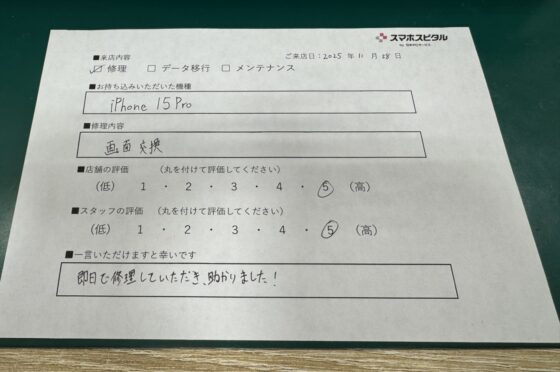 スマホスピタル
■来店内容
ご来店日：2025 年 11 月 28 日
☑ 修理 □ データ移行 □ メンテナンス
■お持ち込みいただいた機種
iPhone 15 Pro
■修理内容
画面交換
■店舗の評価 （丸を付けて評価してください）
（低） 1 ・ 2 ・ 3 ・ 4 ・ 5 （高）
■スタッフの評価 （丸を付けて評価してください）
（低） 1 ・ 2 ・ 3 ・ 4 ・ 5 （高）
■一言いただけますと幸いです
即日で修理していただき、助かりました！